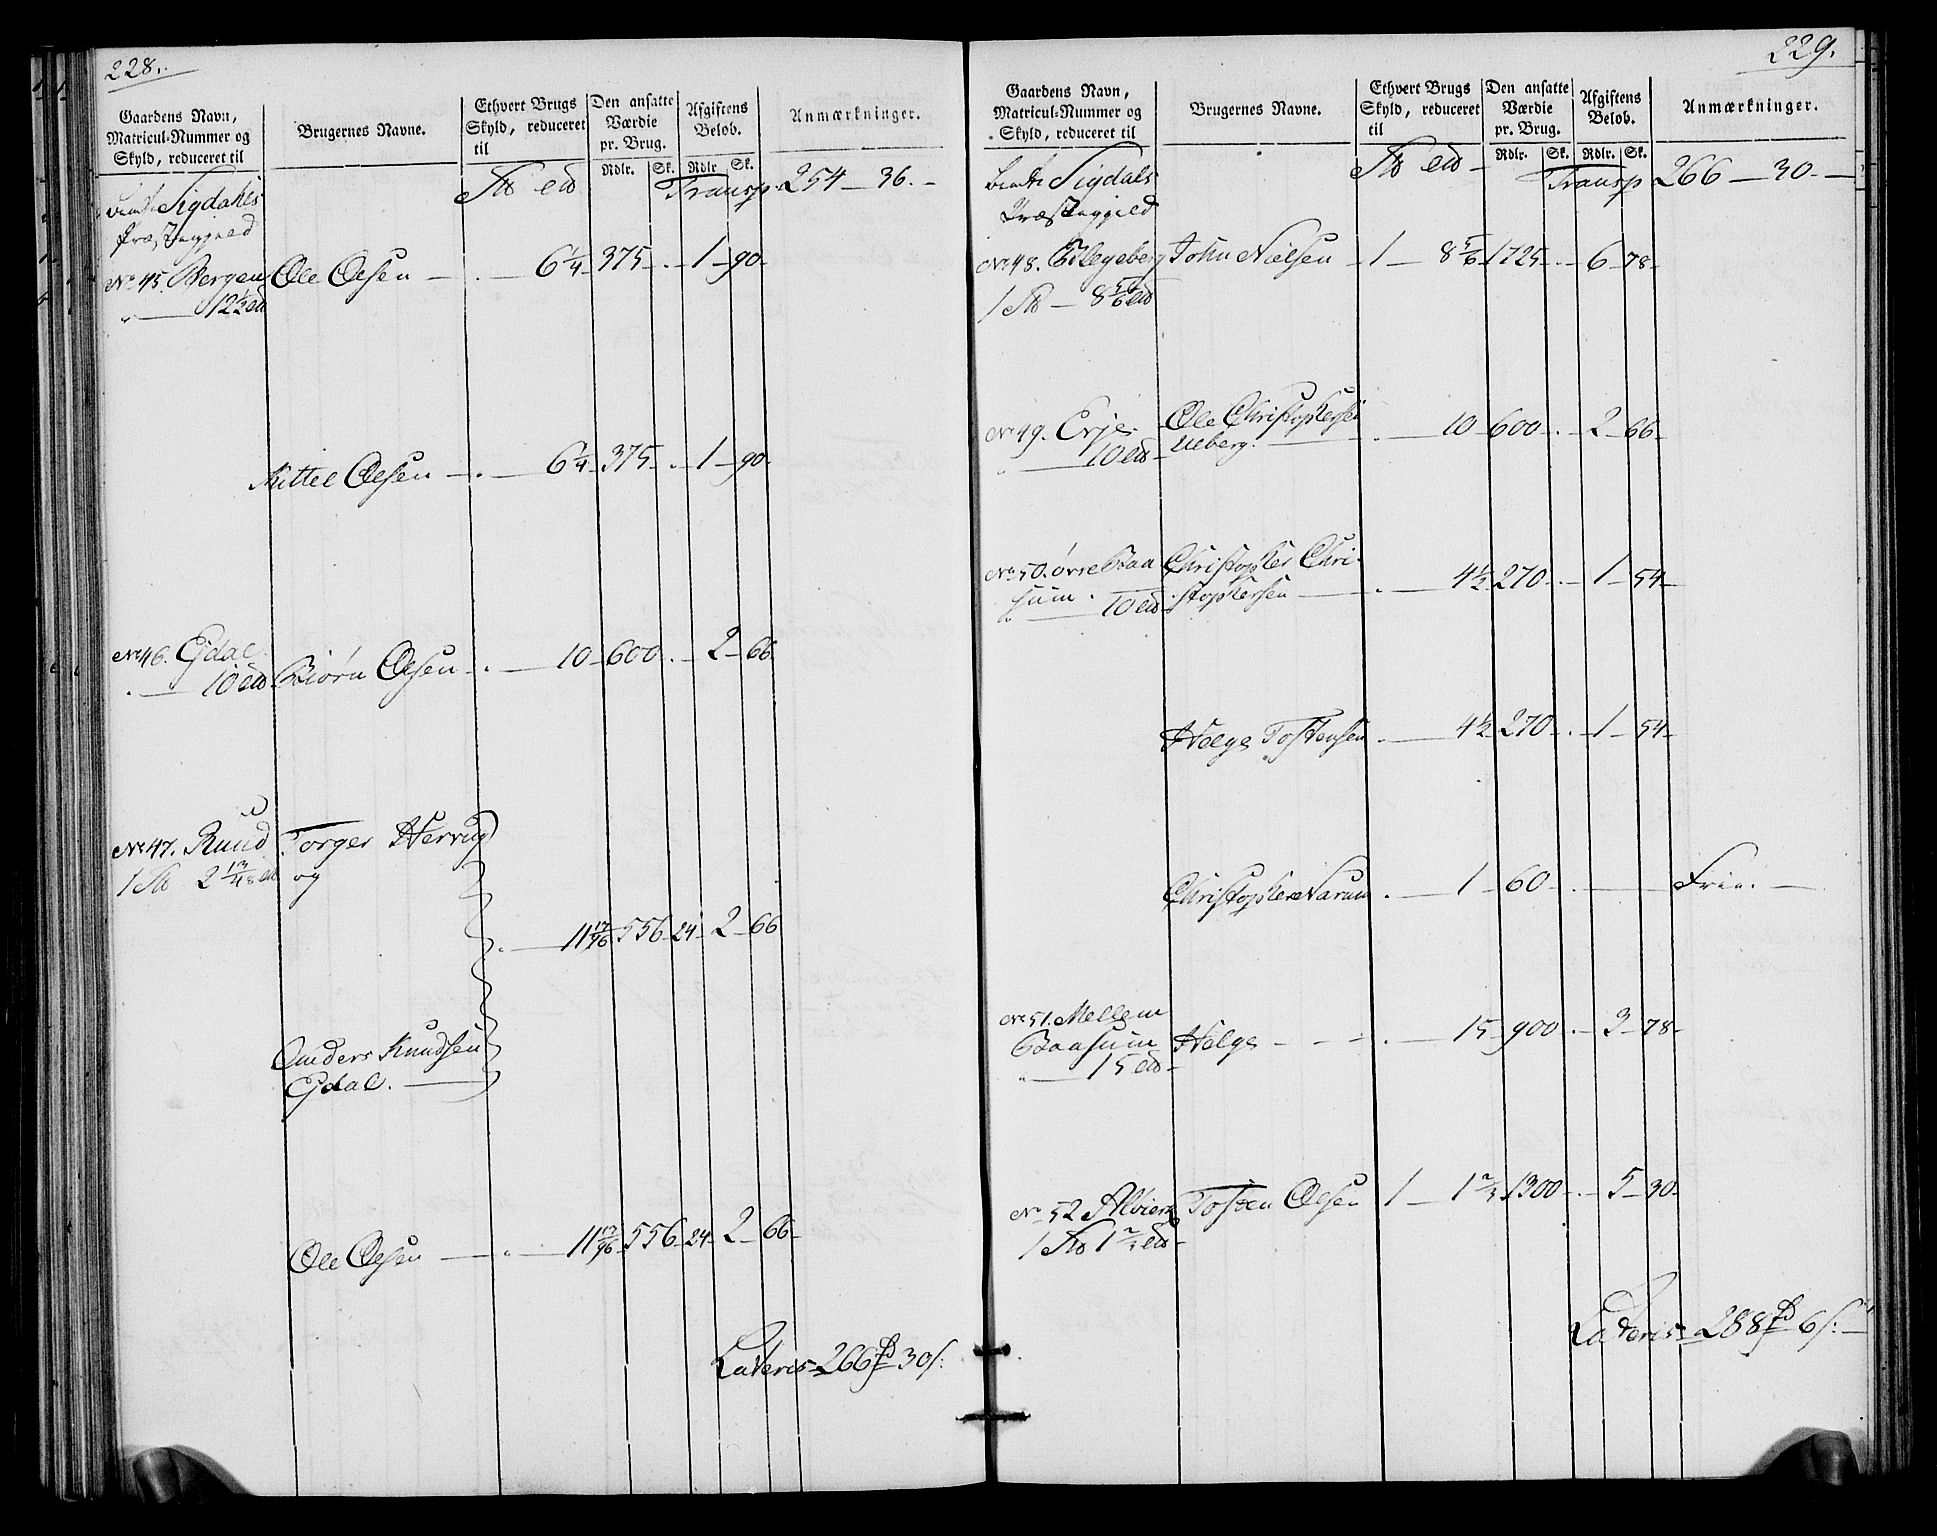 228.
Gaardens Navn,
Matricul-Nummer og
Skyld, reduceret til
Brugernes Navne.
Ethvert Brugs
Skyld, reduceret
til
Den ansatte
Værdie
pr. Brug.
Rdlr. Sk.
Afgiftens
Beløb.
Rdlr. Sk.
Anmærkninger.
Sigdahls
Præstegjeld
Transp. 254 – 36. –
No 45. Bergan Ole Olsen – . – 6 1/4 – 375 – . – 1 – 90 –
" – 12 1/2
Kittel Olsen – . – 6 1/4 – 375 – . – 1 – 90 –
No 46. Ejdal
. – 10 Biørn Olsen – . – 10 – 600 . – 2 – 66
No 47. Ruud Torger Hervug
1 2 13/48 og
. – 11 17/96 556 – 24 – 2 – 66
Anders Knudsen
Ejdal. –
Ole Olsen – " – 11 17/96 – 556 – 24 – 2 – 66 –
Lateris – 266 30 /:
229.
Gaardens Navn,
Matricul-Nummer og
Skyld, reduceret til
Brugernes Navne.
Ethvert Brugs
Skyld, reduceret
til
Den ansatte
Værdie
pr. Brug.
Rdlr. Sk.
Afgiftens
Beløb.
Rdlr. Sk.
Anmærkninger.
Sigdals
Præstegjeld
Transp 266 – 30 –
No 48. John Nielsen – 1 – 8 5/6 – 1725 – . – 6 – 78 –
1 – 8 5/6
No 49. Erje. Ole Christophersen
" – 10 Ueberg. – . – 10 – 600 – . – 2 – 66 –
No 50. øvre Baa Christopher Chri-
sum. – 10 stophersen – . – 4 1/2 270 – . – 1 – 54 –
Helge Tostensen . – 4 1/2 270 – . – 1 – 54 –
Christopher Narum . – 1 – 60 – . – Frie. –
No 51. Mellem
Baasum Helge – – – . – 15 – 900 – . – 3 – 78 –
" – 15
No 52 Tosten Olsen 1 – 1 2/3 – 1300 – . – 5 – 30 –
1 1 2/3
Lateris – 288 6 /: